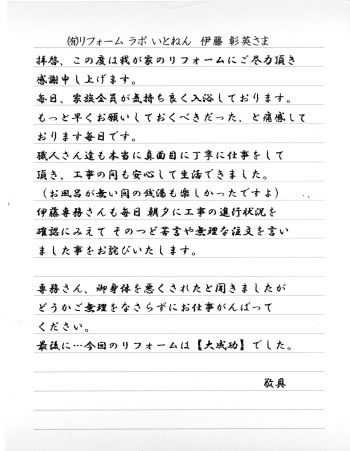 ㈲リフォーム ラボ いとねん 伊藤 彰英さま
拝啓、この度は我が家のリフォームにご尽力頂き
感謝申し上げます。
毎日、家族全員が気持ち良く入浴しております。
もっと早くお願いしておくべきだった、と痛感して
おります毎日です。
職人さん達も本当に真面目に丁寧に仕事をして
頂き、工事の間も安心して生活できました。
（お風呂が無い間の銭湯も楽しかったですよ）
伊藤専務さんも毎日 朝夕に工事の進行状況を
確認にみえて そのつど苦言や無理な注文を言い
ました事をお詫びいたします。
専務さん、御身体を悪くされたと聞きましたが
どうかご無理をなさらずにお仕事がんばって
ください。
最後に…今回のリフォームは【大成功】でした。
敬具